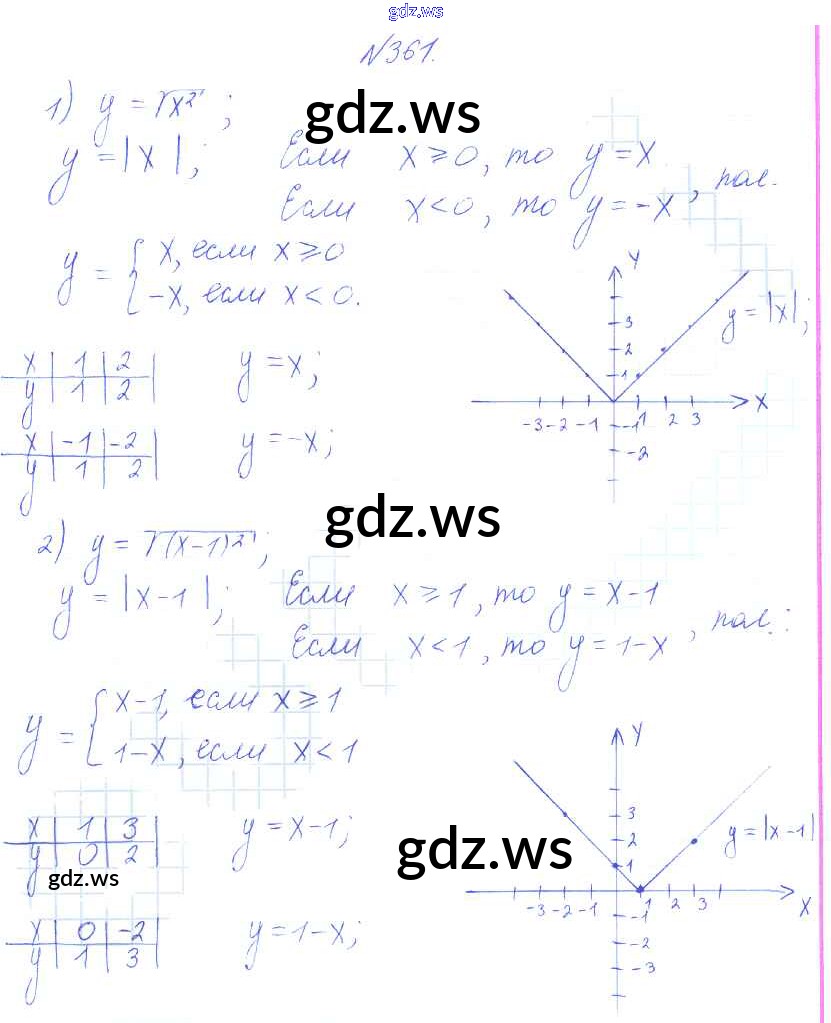 gdz.ws
N361.
1) y = √x²;
gdz.ws
y = |x|; Если x ≥ 0, то y = x
Если x < 0, то y = -x, пол.
y = { x, если x ≥ 0
-x, если x < 0.
Y
y = |x|;
3
2
1
X
-3 -2 -1 1 2 3
-1
-2
x | 1 | 2 | y = x;
y | 1 | 2 |
x | -1 | -2 | y = -x;
y | 1 | 2 |
gdz.ws
2) y = √(x-1)²;
y = |x-1|; Если x ≥ 1, то y = x-1
Если x < 1, то y = 1-x, пол.:
y = { x-1, если x ≥ 1
1-x, если x < 1
Y
3
2
1
y = |x-1|
X
-3 -2 -1 1 2 3
-1
-2
-3
x | 1 | 3 | y = x-1;
y | 0 | 2 |
gdz.ws
gdz.ws
x | 0 | -2 | y = 1-x;
y | 1 | 3 |